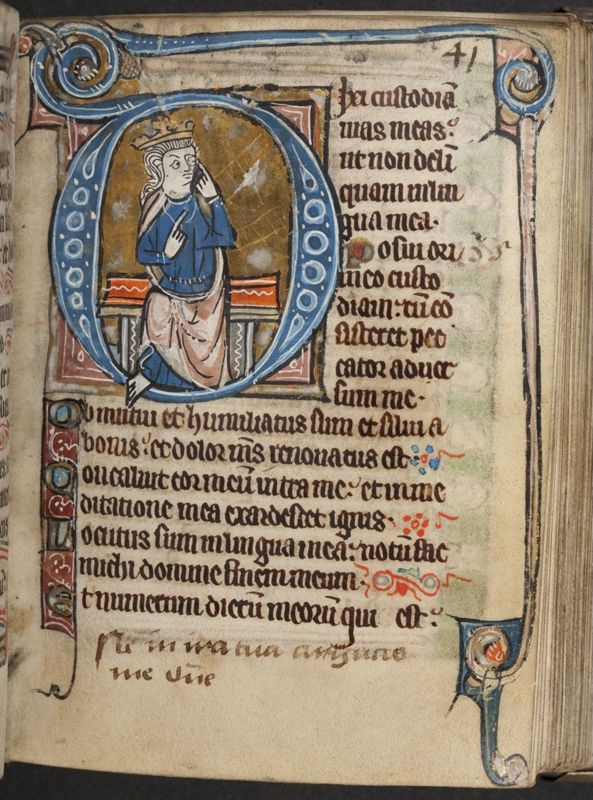 41
D
ixi custodiā
uias meas:
ut non deli
quam in lin
gua mea.
Posui ori
meo custo
diam: cū cō
sisteret pec
cator aduer
sum me.
Obmutui et humiliatus sum et silui a
bonis: et dolor m̄s renouatus est.
Concaluit cor meū intra me: et in me
ditatione mea exardescet ignis.
Locutus sum in lingua mea: notū fac
michi domine finem meum.
Et numerum dierū meorū qui est:
in ira tua
me dn̄e